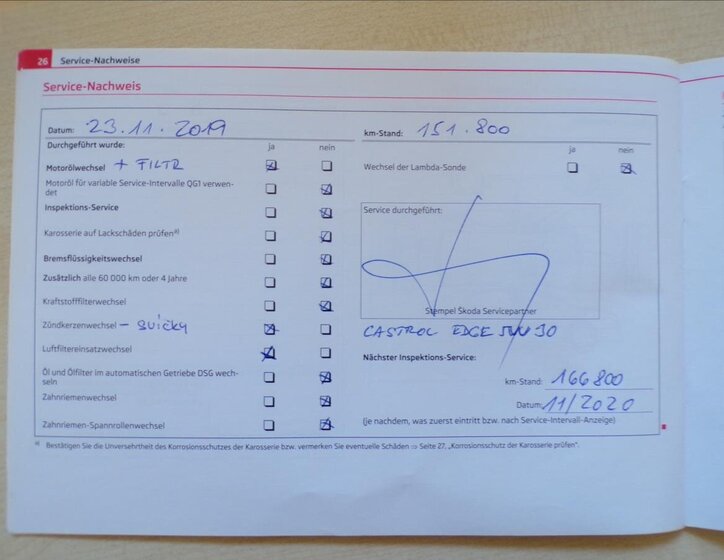 26 Service-Nachweise
Service-Nachweis
Datum: 23.11.2019
km-Stand: 151.800
Durchgeführt wurde: ja nein
ja nein
Motorölwechsel + FILTR
Wechsel der Lambda-Sonde
Motoröl für variable Service-Intervalle QG1 verwen-
det
Inspektions-Service
Service durchgeführt:
Karosserie auf Lackschäden prüfen a)
Bremsflüssigkeitswechsel
Zusätzlich alle 60 000 km oder 4 Jahre
Kraftstofffilterwechsel
Stempel Škoda Servicepartner
Zündkerzenwechsel - SVÍČKY
CASTROL EDGE 5W30
Luftfiltereinsatzwechsel
Nächster Inspektions-Service:
Öl und Ölfilter im automatischen Getriebe DSG wech-
seln
km-Stand: 166800
Zahnriemenwechsel
Datum: 11/2020
Zahnriemen-Spannrollenwechsel
(je nachdem, was zuerst eintritt bzw. nach Service-Intervall-Anzeige)
a) Bestätigen Sie die Unversehrtheit des Korrosionsschutzes der Karosserie bzw. vermerken Sie eventuelle Schäden ⇒ Seite 27, „Korrosionsschutz der Karosserie prüfen“.